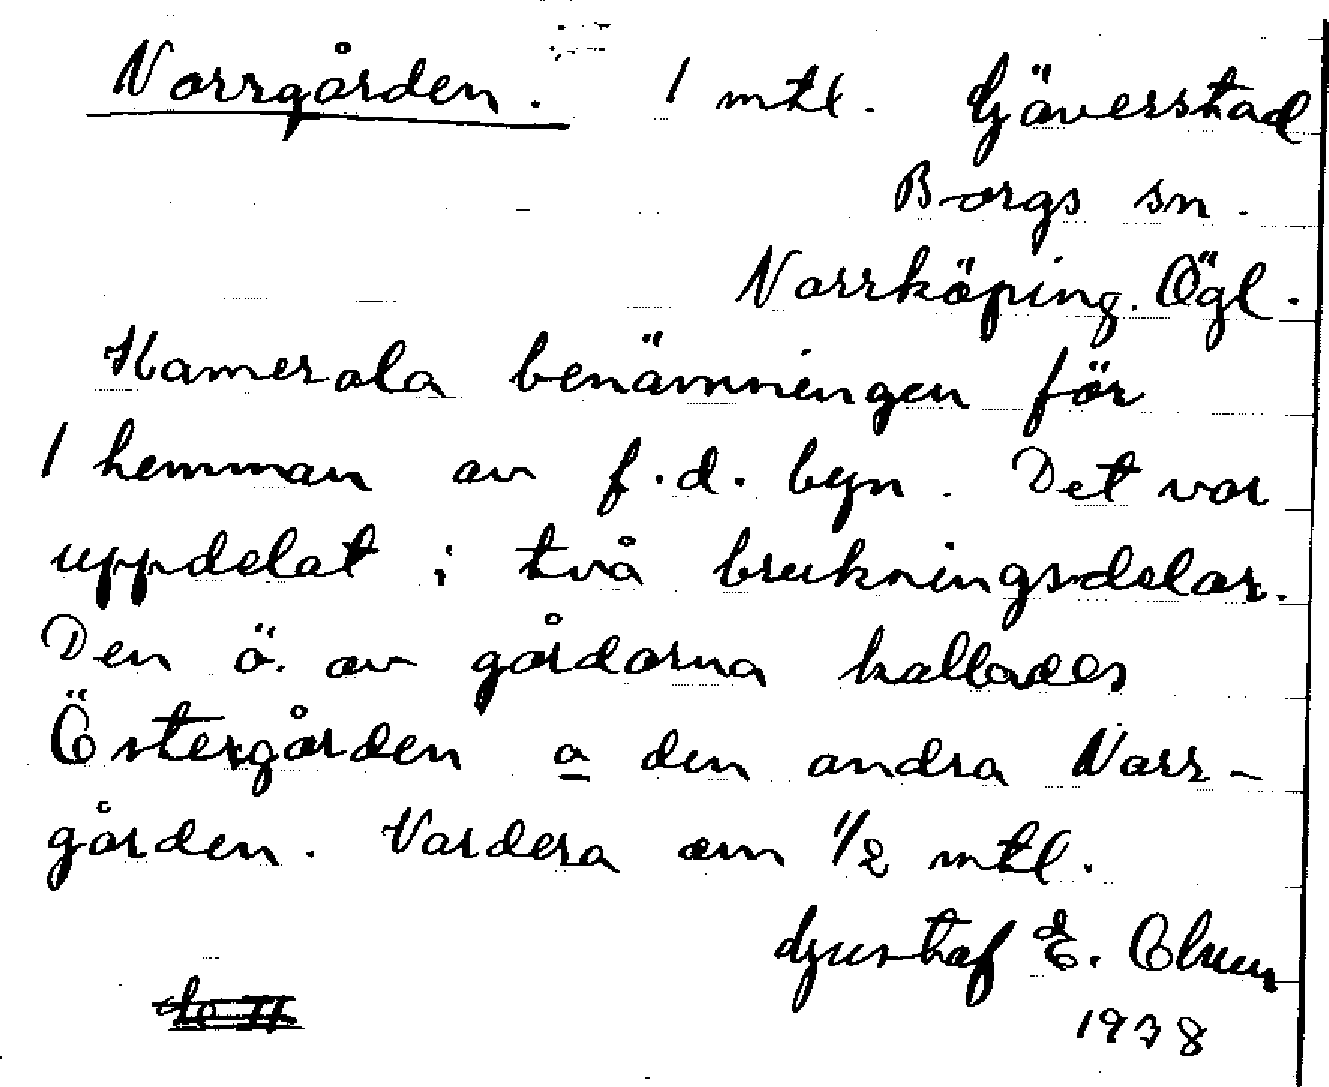 Norrgården. 1 mtl. Gäverstad
Borgs sn.
Norrköping. Ögl.
Kamerala benämningen för
1 hemman av f.d. byn. Det var
uppdelat i två brukningsdelar.
Den ö. av gårdarna kallades
Östergården a den andra Norr-
gården. Vardera om 1/2 mtl.
Gustaf E.
1938